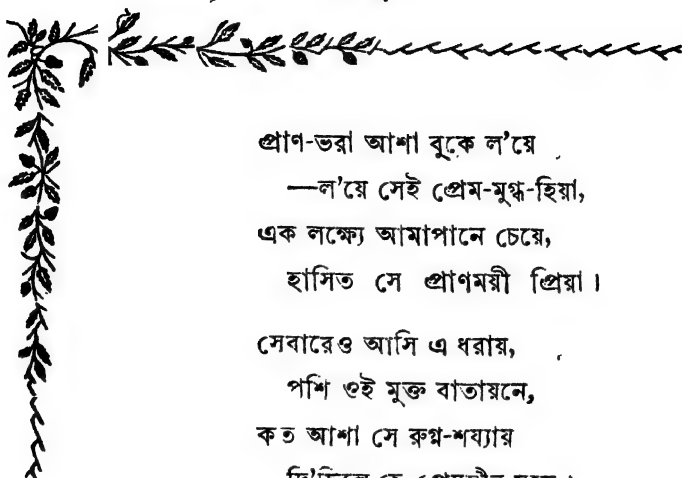 প্রাণ-ভরা আশা বুকে ল'য়ে
—ল'য়ে সেই প্রেম-মুগ্ধ-হিয়া,
এক লক্ষ্যে আমাপানে চেয়ে,
হাসিত সে প্রাণময়ী প্রিয়া।
সেবারেও আসি এ ধরায়,
পশি ওই মুক্ত বাতায়নে,
কত আশা সে রুগ্ন-শয্যায়